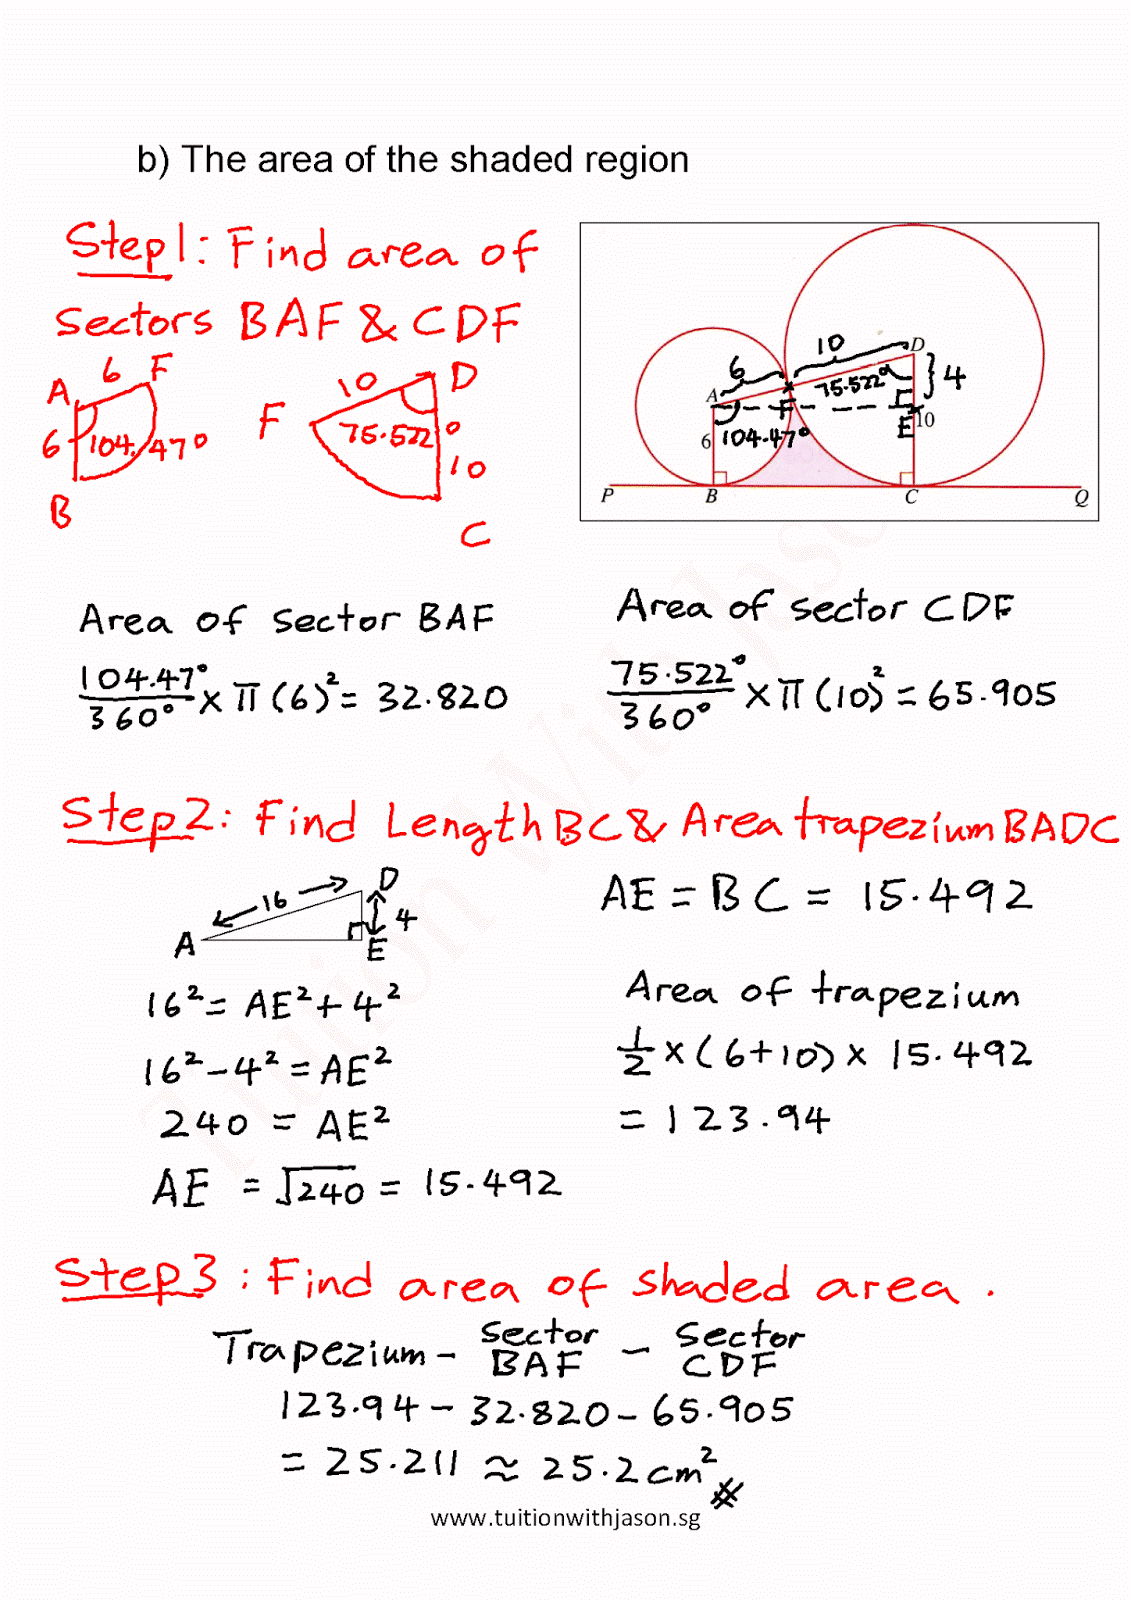 b) The area of the shaded region
Step1: Find area of
sectors BAF & CDF
A 6 F
6 104.47°
B
10 D
F 75.522°
10
C
10 D
6 75.522° 4
A F E
6 104.47° 10
P B C Q
Area of sector BAF
104.47°/360° × π(6)² = 32.820
Area of sector CDF
75.522°/360° × π(10)² = 65.905
Step2: Find Length BC & Area trapezium BADC
16 D
4
A E
16² = AE² + 4²
16² - 4² = AE²
240 = AE²
AE = √240 = 15.492
AE = BC = 15.492
Area of trapezium
1/2 × (6+10) × 15.492
= 123.94
Step3: Find area of shaded area.
Trapezium - Sector BAF - Sector CDF
123.94 - 32.820 - 65.905
= 25.211 ≈ 25.2cm²
www.tuitionwithjason.sg
Tuition With Jason